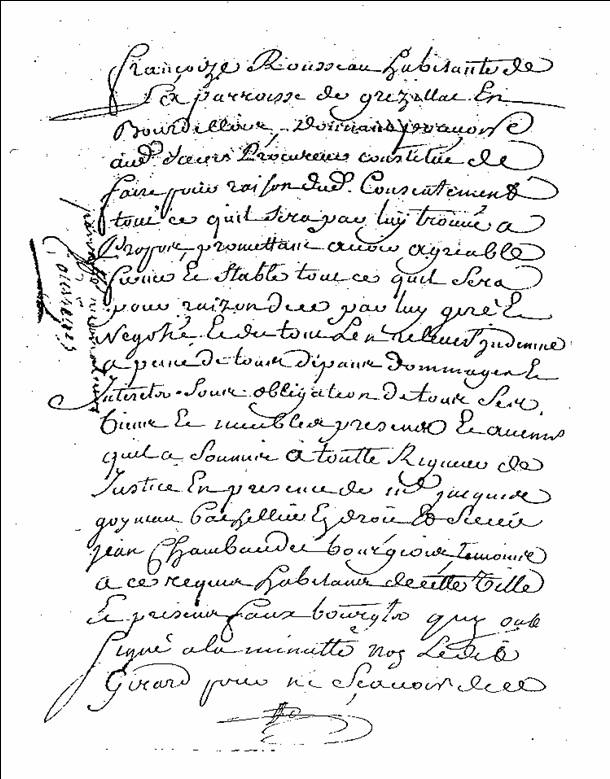 françoize Rousseau habitante de
parroisse de grezillac En
Bourdellois, Donnant pouvoir
aud. sieur Procureur constitué de
faire pour raison dud. Consentement
tout ce quil sera par luy trouvé a
Propos, promettant avoir agreable
ferme Et stable tout ce quil sera
pour raizon de ce par luy geré Et
Negotié Et du tout Len relever Indemne
a peine de tous depans Dommages Et
Interets, sous obligation de tous ses
biens Et meubles presens Et avenir
quil a soumis a toutte Rigueur de
Justice En presence de me
En droit Et sieur
jean bourgeois temoins
a ce requis habitans de cette Ville
Et presens faux bourgts quy ont
signé a la minutte non Ledit
Girard pour ne sçavoir de ce